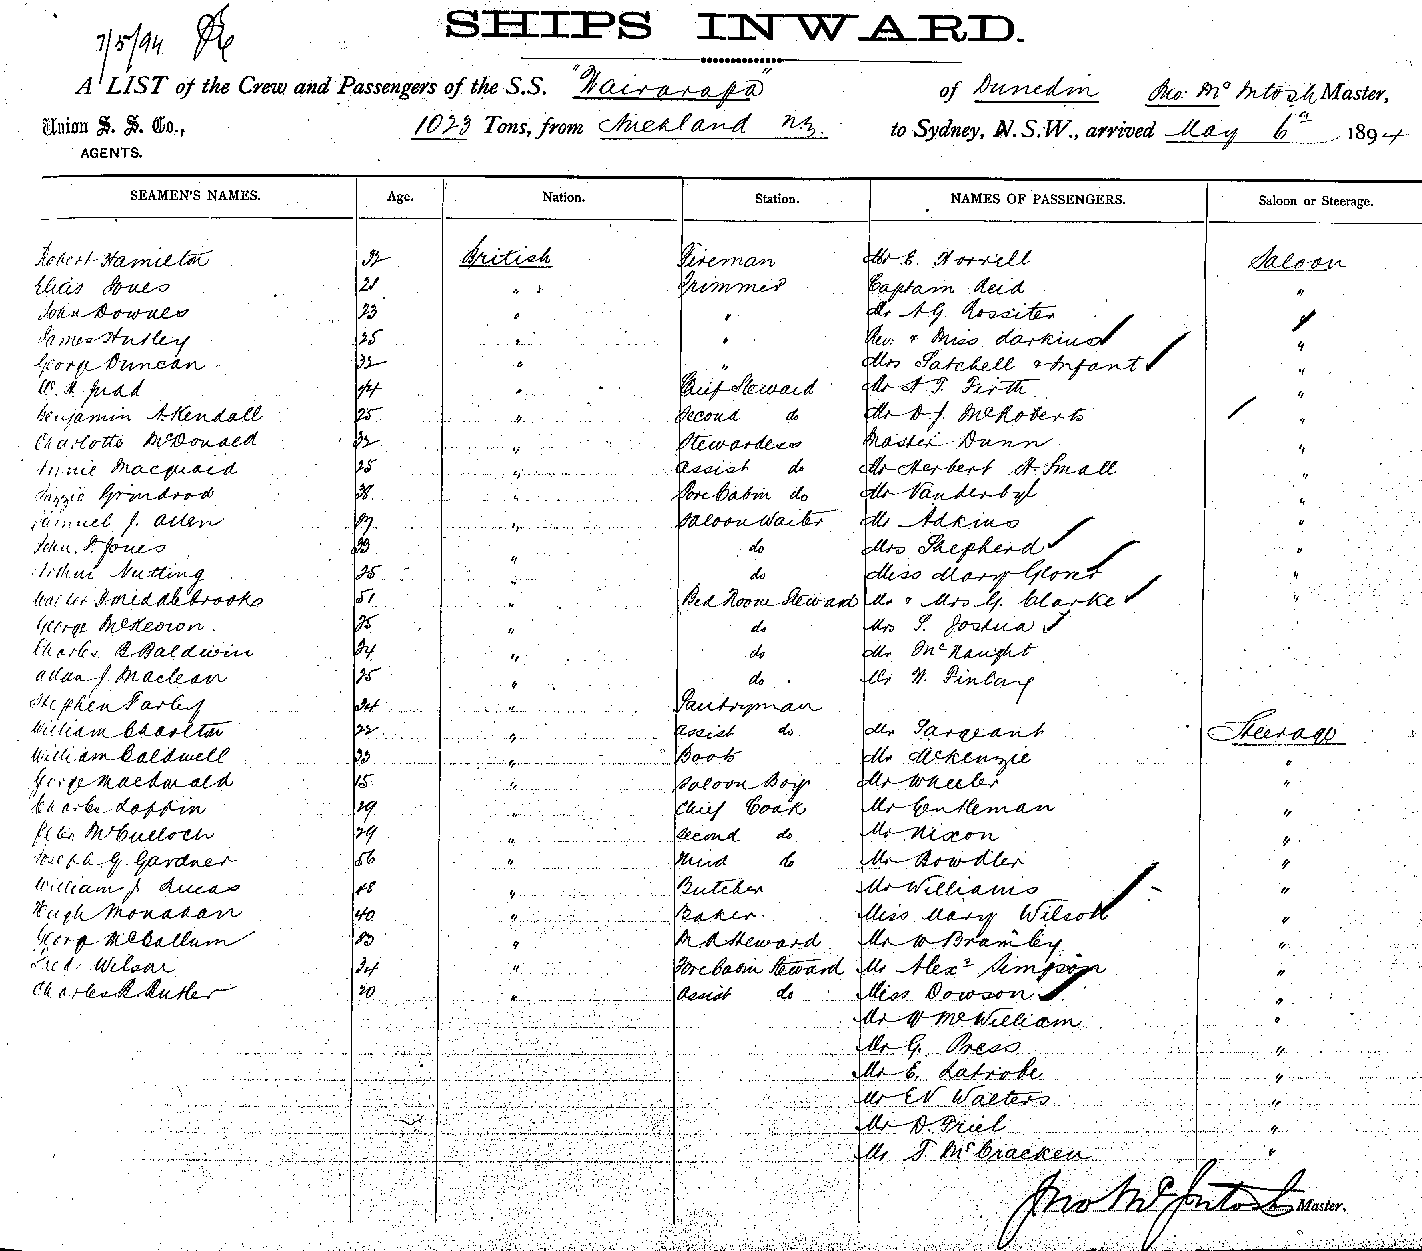 SHIPS INWARD.
7/5/94
A LIST of the Crew and Passengers of the S.S. "Wairarapa" of Dunedin Jno: Mc Intosh Master,
Union S. S. Co., 1023 Tons, from Auckland N.Z. to Sydney, N.S.W., arrived May 6th 1894
AGENTS.
SEAMEN'S NAMES. Age. Nation. Station. NAMES OF PASSENGERS. Saloon or Steerage.
Robert Hamilton 32 British Fireman Mr E. Horrell Saloon
Elias Jones 21 " Trimmer Captain Reid "
John Downes 23 " " Mr A G. Rossiter "
James Hutley 25 " " Rev: & Miss Larkins "
George Duncan 32 " " Mrs Satchell & Infant "
W. H. Judd 44 " Chief Steward Mr A T. Firth "
Benjamin A Kendall 25 " Second do Mr D J. McRoberts "
Charlotte McDonald 32 " Stewardess Master Dunn "
Annie Macquaid 25 " Assist do Mr Herbert H. Small "
Lizzie Grindrod 38 " Fore Cabin do Mr Vanderbyl "
Samuel J. Allen " Saloon Waiter Mr Adkins "
John P. Jones 33 " do Mrs Shepherd "
Arthur Nutting 25 " do Miss Mary "
Walter Middlebrooks 51 " Bed Room Steward Mr & Mrs G. Clarke "
George McKeown. 25 " do Mrs S. Joshua
Charles R Baldwin 24 " do Mr McNaught
Allan J. Maclean 25 " do Mr W. Finlay
Stephen Farley 24 " Pantryman
William Charlton 22 " assist do Mr Sargeant Steerage
William Caldwell 33 " Boots Mr McKenzie "
George MacDonald 15 " Saloon Boy Mr Wheeler "
Charles Loppin 29 " Chief Cook Mr Gentleman "
Peter McCulloch 29 " Second do Mr Nixon "
Joseph G. Gardner 56 " Third do Mr Bowdler "
William J. Lucas 48 " Butcher Mr Williams "
Hugh Monahan 40 " Baker. Miss Mary Wilson "
George McCallum " Steward Mr W Bramley "
Fred: Wilson 34 " Fore Cabin Steward Mr Alexr Simpson "
Charles R Butler 20 " Assist do Miss Dowson "
Mr W McWilliam "
Mr G. Press "
Mr E. Latrobe "
Mr E V Walters "
Mr D. Friel "
Mr T McCracken "
Jno McIntosh Master.